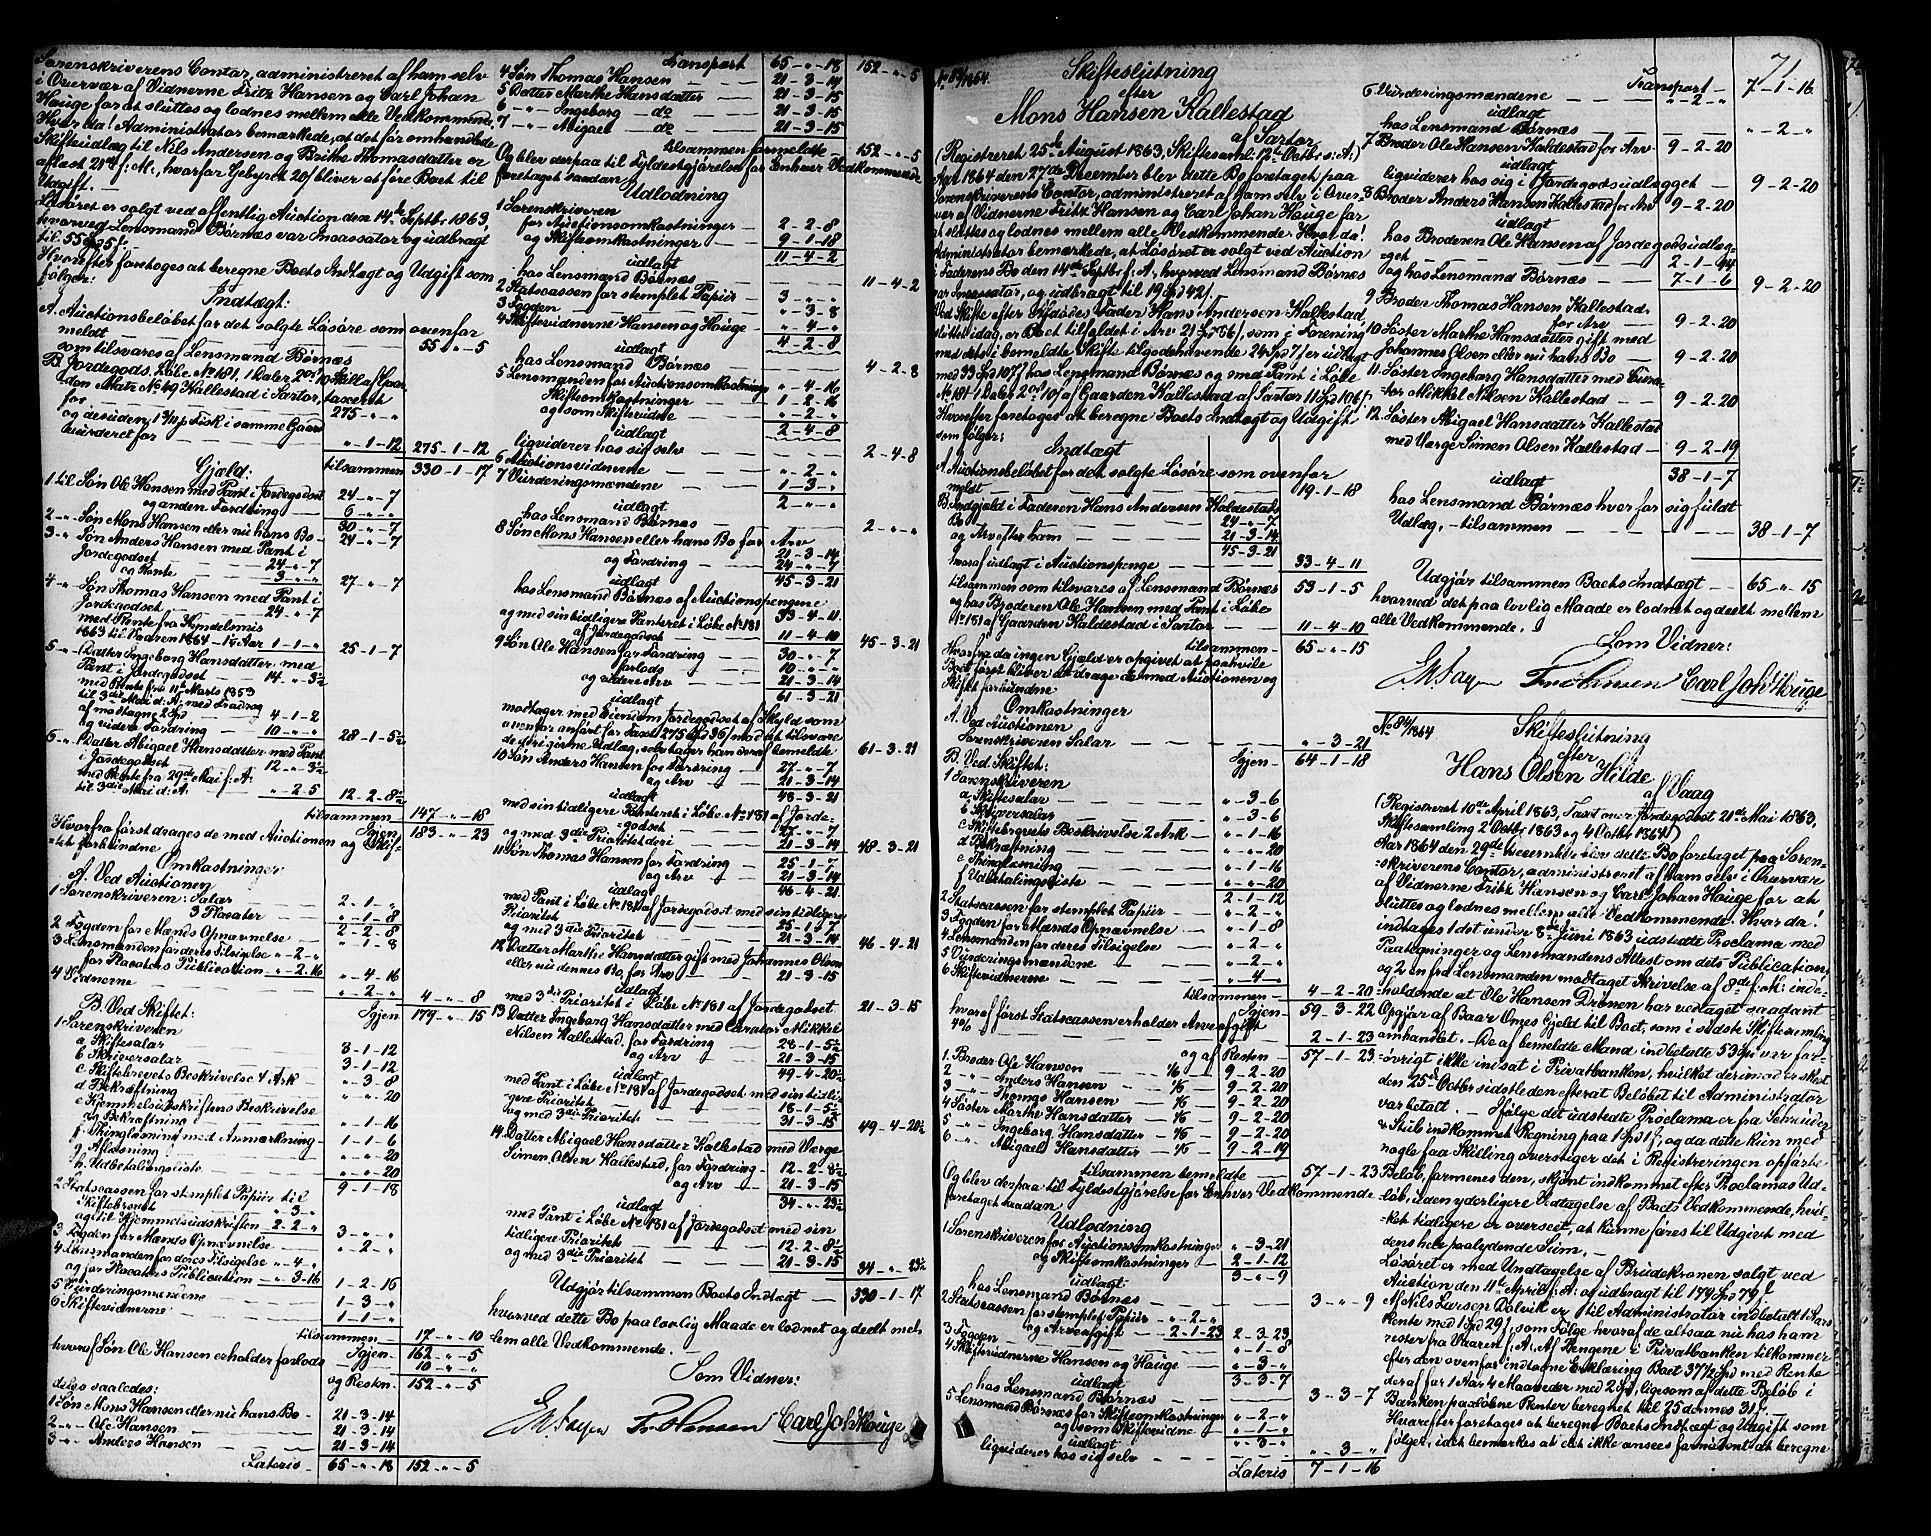 Sorenskriverens Contor, administreret af ham selv
i Overvær af Vidnerne Fritz Hansen og Carl Johan
Hauge for at sluttes og lodnes mellem alle Vedkommende.
Hvor da! Administrator bemærkede, at det før omhandlede
Skifteudlæg til Nils Andersen og Brithe Thomasdatter er
aflæst 21de f. M., hvorfor Gebyret 20 f bliver at føre Boet til
Udgift. —
Løsøret er solgt ved offentlig Auction den 14de Septbr 1863,
hvorved Lensmand Børnæs var Incassator og udbragt
til 55 Spd 5 f.
Hvorefter foretoges at beregne Boets Indtægt og Udgift som
følger:
Indtægt:
A. Auctionsbeløbet for det solgte Løsøre som ovenfor
meldt — 55 „ 5
som tilsvares af Lensmand Børnæs
B. Jordegods. Løbe No 181 1 Daler 2 ort 10 Skill af Gaar-
den Matr No 49 Kallestad i Sartor, taxeret
for — 275 - „ - „
og desuden 1 Fisk i samme Gaard
vurderet for — „ - 1 - 12 275 - 1 - 12
tilsammen 330 - 1 - 17
Gjæld:
1 til Søn Ole Hansen med Pant i Jordegodset 24 - „ - 7
og anden Fordring — 6 - „ - „
30 - „ - 7
2 - „ - Søn Mons Hansen eller nu hans Bo — 24 - „ - 7
3 - „ Søn Anders Hansen med Pant i
Jordegodset — 24 - „ - 7
og Rente — 3 - „ - „ 27 - „ - 7
4 - „ Søn Thomas Hansen med Pant i
Jordegodset — 24 - „ - 7
med Rente fra Kyndelsmis
1863 til Vaaren 1864 - 1¼ Aar 1 - 1 - „ 25 - 1 - 7
5 - „ Datter Ingeborg Hansdatter med
Pant i Jordegodset — 14 - „ - 3½
med Rente fra 11te Marts 1853
til 3die Mai d: A; med Fradrag
af modtagne 2 Spd 4 - 1 - 2
og videre Fordring 10 - „ - „ 28 - 1 - 5½
6 - „ Datter Abigael Hansdatter med Pant
i Jordegodset — 12 - „ - 3½
med Rente fra 29de Mai f: A:
til 3die Mai d: A. — „ - 2 5 12 - 2 - 8½
tilsammen 147 - „ - 18
Igjen 183 - „ - 23
Hvorfra først drages de med Auctionen og Skif-
tet forbundne
Omkostninger
A. Ved Auctionen
1 Sorenskriveren: Salar 2 - 1 - „
3 Placater „ - 1 - 8
2 - 2 - 8
2 Fogden for Mænds Opnævnelse — „ - 1 - 8
3 Lensmanden for deres Tilsigelse „ - 2 - „
for Placaters Publication „ - 2 16 „ - 4 - 16
4 Vidnerne — „ - 2 - „ 4 - „ - 8
B. Ved Skiftet: Igjen 179 - „ - 15
1 Sorenskriveren
a Skiftesalar — 3 - 1 - 12
b Skriversalar — 3 - 1 - 12
c Skiftebrevets Beskrivelse 4 Ark — „ - 3 - 8
d Bekræftning — „ - „ - 20
e Hjemmelsudskriftens Beskrivelse
og Bekræftning — „ - 1 - 16
f Thinglæsning med Anmærkning — 1 - 1 - 6
g Aflæsning — „ - „ - 20
h Udbetalingsliste — „ - „ - 20
9 - 1 - 18
2 Statscassen for stemplet Papiir til
Skiftebrevet — „ - 3 - „
og til Hjemmelsudskriften 2 - 2 - „ 3 - „ - „
3 Fogden for Mænds Opnævnelse — „ - 2 - „
4 Lensmanden for deres Tilsigelse „ - 4 - „
og for Placaters Publication „ - 3 - 16 1 - 2 - 16
5 Vurderingsmændene — 1 - 3 - „
6 Skiftevidnerne — 1 - 1 - „
tilsammen 17 - „ - 10
Igjen 162 - „ - 5
hvoraf Søn Ole Hansen erholder forlods 10 - „ - „
og Resten 152 - „ - 5
deles saaledes:
1 Søn Mons Hansen eller nu hans Bo — 21 - 3 - 14
2 - „ Ole Hansen — 21 - 3 - 14
3 - „ Anders Hansen — 21 - 3 - 14
Lateris 65 - „ - 18 152 - „ - 5
Transport 65 - „ - 18 152 - „ - 5
4 Søn Thomas Hansen — 21 - 3 - 14
5 Datter Marthe Hansdatter — 21 - 3 - 15
6 - „ - Ingeborg — do 21 - 3 - 15
7 - „ - Abigael — do 21 - 3 - 15
tilsammen formeldte 152 - „ - 5
Og blev derpaa til Fyldestgjørelse for Enhver Vedkommende
foretaget saadan
Udlodning
1 Sorenskriveren
for Auctionsomkostninger — 2 - 2 - 8
og Skifteomkostninger — 9 - 1 - 18
11 - 4 - 2
udlagt
hos Lensmand Børnæs — 11 - 4 - 2
2 Statscassen for stemplet Papiir — 3 - „ - „
3 Fogden — „ - 3 - 8
4 Skiftevidnerne Hansen og Hauge — „ - 4 - „
4 - 2 - 8
udlagt
hos Lensmand Børnæs 4 - 2 - 8
5 Lensmanden for Auctionsomkostning „ - 4 - 16
Skifteomkostninger 1 - 2 - 16
og som Skiftevidne — „ - 2 - „
2 - 4 - 8
udlagt
liqviderer hos sig selv — 2 - 4 - 8
6 Auctionsvidnerne — „ - 2 - „
7 Vurderingsmændene — 1 - 3 - „
2 - „ - „
udlagt
hos Lensmand Børnæs — 2 - „ - „
8 Søn Mons Hansen eller hans Bo for Arv 21 - 3 - 14
og Fordring — 24 - „ - 7
45 - 3 - 21
udlagt
hos Lensmand Børnæs af Auctionspengene 33 - 4 - 11
og med sin tidligere Panteret i Løbe No 181
af Jordegodset 11 - 4 - 10 45 - 3 - 21
9 Søn Ole Hansen for Fordring 30 - „ - 7
forlods 10 - „ - „
og videre Arv 21 - 3 - 14
61 - 3 - 21
udlagt
modtager med Eiendom Jordegodset af Skyld som
ovenfor anført for Taxt 275 Spd 36 f mod at tilsvare
de øvrige sine Udlæg, selv tager han deraf bemeldte 61 - 3 - 21
10 Søn Anders Hansen for Fordring — 27 - „ - 7
og Arv 21 - 3 - 14
48 - 3 - 21
udlagt
med sin tidligere Panteret i Løbe No 181 af Jorde-
godset 27 - „ - 7
og med 3die Prioritet deri 21 - 3 - 14 48 - 3 - 21
11 Søn Thomas Hansen for Fordring — 25 - 1 - 7
og Arv 21 - 3 - 14
46 - 4 - 21
udlagt
med Pant i Løbe No 181 af Jordegodset med sin tidligere
Prioritet — 25 - 1 - 7
og med 3die Prioritet — 21 - 3 - 14 46 - 4 - 21
12 Datter Marthe Hansdatter gift med Johannes Olsen
eller nu dennes Bo, for Arv — 21 - 3 - 15
udlagt
med 3die Prioritet i Løbe No 181 af Jordegodset 21 - 3 - 15
13 Datter Ingeborg Hansdatter med Curator Mikkel
Nilsen Kallestad, for Fordring 28 - 1 - 5½
og Arv 21 - 3 - 15
49 - 4 - 20½
udlagt
med Pant i Løbe No 181 af Jordegodset med sin tidli-
gere Prioritet — 18 - 1 - 5½
og med 3die Prioritet — 31 - 3 - 15 49 - 4 - 20½
14 Datter Abigael Hansdatter Kallestad med Værge
Simen Olsen Kallestad, for Fordring — 12 - 2 - 8½
og Arv — 21 - 3 - 15
34 - „ - 23½
udlagt
med Pant i Løbe No 181 af Jordegodset med sin
tidligere Prioritet — 12 - 2 - 8½
og med 3die Prioritet — 21 - 3 - 15 34 - „ - 23½
Udgjør tilsammen Boets Indtægt — 330 - 1 - 17
hvorved dette Bo paa lovlig Maade er lodnet og deelt mel-
lem alle Vedkommende.
Som Vidner:
Fr. Hansen Carl Joh. Hauge
71
No 83/1864.
Skifteslutning
efter
Mons Hansen Kallestad
af Sartor
(Registreret 25de August 1863, Skiftesaml: 17de Octbr s: A:)
Aar 1864 den 27de December blev dette Bo foretaget paa
Sorenskriverens Contor, administreret af ham selv i Over-
vær af Vidnerne Fritz Hansen og Carl Johan Hauge for
at sluttes og lodnes mellem alle Vedkommende. Hvor da!
Administrator bemærkede, at Løsøret er solgt ved Auction
i Faderens Bo den 14de Septbr f: A, hvorved Lensmand Børnæs
var Incassator, og udbragt til 19 Spd 42 f.
Ved Skifte efter Afdødes Fader Hans Andersen Kallestad,
sluttet idag, er Boet tilfaldet i Arv 21 Spd 86 f, som i Forening
med dets i bemeldte Skifte tilgodehavende 24 Spd 7 f er udlagt
med 33 Spd 107 f hos Lensmand Børnæs og med Pant i Løbe
No 181 1 Daler 2 ort 10 f af Gaarden Kallestad af Sartor 11 Spd 106 f.
Hvorefter foretoges at beregne Boets Indtægt og Udgift
som følger:
Indtægt
A Auctionsbeløbet for det solgte Løsøre som ovenfor
meldt — 19 - 1 - 18
B. Indgjæld i Faderen Hans Andersen Kaldestads
Bo — 24 - „ - 7
og Arv efter ham — 21 - 3 - 14
45 - 3 - 21
hvoraf udlagt i Auctionspenge — 33 - 4 - 11
tilsammen som tilsvares af Lensmand Børnæs 53 - 1 - 5
og hos Broderen Ole Hansen med Pant i Løbe
No 181 af Gaarden Kaldestad i Sartor — 11 - 4 - 10
tilsammen 65 - „ - 15
Hvorfra da ingen Gjæld er opgivet at paahvile
Boet først bliver at drage de med Auctionen og
Skiftet forbundne
Omkostninger
A. Ved Auctionen
Sorenskriveren Salar — „ - 3 - 21
Igjen 64 - 1 - 18
B. Ved Skiftet:
1 Sorenskriveren
a. Skiftesalar — „ - 3 - 6
b Skriversalar — „ - 3 - 6
c Skiftebrevets Beskrivelse 2 Ark — „ - 1 - 16
d Bekræftning — „ - „ - 20
e Thinglæsning — „ - 1 - 16
f Udbetalingsliste — „ - „ - 20
2 - 1 - 12
2 Statscassen for stemplet Papiir — „ - 2 - „
3 Fogden for Mænds Opnævnelse — „ - 1 - 8
4 Lensmanden for deres Tilsigelse — „ - 2 - „
5 Vurderingsmændene — „ - 2 - „
6 Skiftevidnerne — „ - 4 - „
tilsammen 4 - 2 - 20
Igjen 59 - 3 - 22
hvoraf først Statscassen erholder Arveafgift
4% — 2 - 1 - 23
og af Resten 57 - 1 - 23
1. Broder Ole Hansen — 1/6 9 - 2 - 20
2 - „ - Anders Hansen — 1/6 9 - 2 - 20
3 - „ - Thomas Hansen — 1/6 9 - 2 - 20
4 Søster Marthe Hansdatter — 1/6 9 - 2 - 20
5 - „ - Ingeborg Hansdatter — 1/6 9 - 2 - 20
6 - „ - Abigael Hansdatter — 1/6 9 - 2 - 19
tilsammen bemeldte 57 - 1 - 23
Og blev derpaa til Fyldestgjørelse for Enhver Vedkommende
foretaget saadan
Udlodning
1. Sorenskriveren for Auctionsomkostninger „ - 3 - 21
og Skifteomkostninger — 2 - 1 - 12
3 - „ - 9
udlagt
hos Lensmand Børnæs — 3 - „ - 9
2 Statscassen for stemplet Papiir — „ - 2 - „
og Arveafgift — 2 - 1 - 23 2 - 3 - 23
3 Fogden — „ - 1 - 8
4 Skiftevidnerne Hansen og Hauge — „ - 3 - „
3 - 3 - 7
udlagt
hos Lensmand Børnæs — 3 - 3 - 7
5 Lensmand Børnæs for Skifteomkostninger „ - 2 - „
og som Skiftevidne „ - 1 - „
„ - 3 - „
udlagt
liqviderer hos sig selv — „ - 3 - „
Lateris 7 - 1 - 16
Transport 7 - 1 - 16
6 Vurderingsmændene — „ - 2 - „
udlagt
hos Lensmand Børnæs — „ - 2 - „
7 Broder Ole Hansen Kaldestad for Arv 9 - 2 - 20
udlagt
liqviderer hos sig i Jordegodsudlægget — 9 - 2 - 20
8 Broder Anders Hansen Kallestad for Arv 9 - 2 - 20
udlagt
hos Broderen Ole Hansen af Jordegodsudlæg-
get — 2 - 1 - 14
og hos Lensmand Børnæs — 7 - 1 - 6 9 - 2 - 20
9 Broder Thomas Hansen Kallestad.
for Arv 9 - 2 - 20
10 Søster Marthe Hansdatter gift med
Johannes Olsen eller nu hans Bo — 9 - 2 - 20
11 Søster Ingeborg Hansdatter med Cura-
tor Mikkel Nilsen Kallestad — 9 - 2 - 20
12 Søster Abigael Hansdatter Kallestad
med Værge Simen Olsen Kallestad — 9 - 2 - 19
38 - 1 - 7
udlagt
hos Lensmand Børnæs hver for sig fuldt
Udlæg, - tilsammen — 38 - 1 - 7
Udgjør tilsammen Boets Indtægt — 65 - „ - 15
hvorved det paa lovlig Maade er lodnet og deelt mellem
alle Vedkommende.
Som Vidner:
Fr. Hansen Carl Joh. Hauge
No 84/1864
Skifteslutning
efter
Hans Olsen Hilde
af Vaag
(Registreret 10de April 1863, Taxt over Jordegodset 21de Mai 1863,
Skiftesamling 2 Octbr 1863 og 4 Octbr 1864)
Aar 1864 den 29de December blev dette Bo foretaget paa Soren-
skriverens Contor, administreret af ham selv i Overvær
af Vidnerne Fritz Hansen og Carl Johan Hauge for at
sluttes og lodnes mellem alle Vedkommende. Hvor da!
indtages 1 det under 8de Juni 1863 udstedte Proclama med
Paategninger og Lensmandens Attest om dets Publication,
og 2 en fra Lensmanden modtaget Skrivelse af 8de f: M: inde-
holdende at Ole Hansen Drønen har vedtaget saadant
Opgjør af Baar Omes Gjeld til Boet, som i sidste Skiftesamling
omhandlet. — De af bemeldte Mand indbetalte 53 Spd var for-
øvrigt ikke indsat i Privatbanken, hvilket derimod er skeet
den 25de Octbr sidstleden efterat Beløbet til Administrator
var betalt. — Ifølge det udstedte Proclama er fra Schrøder
& Stub indkommet Regning paa 1 Spd 1 f, og da dette kun med
nogle faa Skilling overstiger det i Registreringen opførte
Beløb, formenes den, skjønt indkommet efter Proclamas Ud-
løb, uden yderligere Vedtagelse af Boets Vedkommende, hvil-
ket tidligere er overseet, at kunne føres til Udgivt med
dens hele paalydende Sum. —
Løsøret er med Undtagelse af Brudekronen solgt ved
Auction den 11te April f: A: og udbragt til 174 Spd 79 f.
Af Nils Larsen Dolvik er til Administrator indbetalt 1 Aars
Rente med 1 Spd 29 f, som Følge hvoraf de altsaa nu hos ham
rester fra Vaaren f: A: Af Pengene i Privatbanken tilkommer
efter den ovenfor indtagne Erklæring Boet 37½ Spd med Rente
deraf for 1 Aar 4 Maaneder med 2 Spd, ligesom af dette Beløb i
Banken paaløbne Renter beregnet til 25 dennes 31 f. —
Hvorefter foretoges at beregne Boets Indtægt og Udgift som
følger, idet bemærkes at det ikke ansees fornødent at beregne